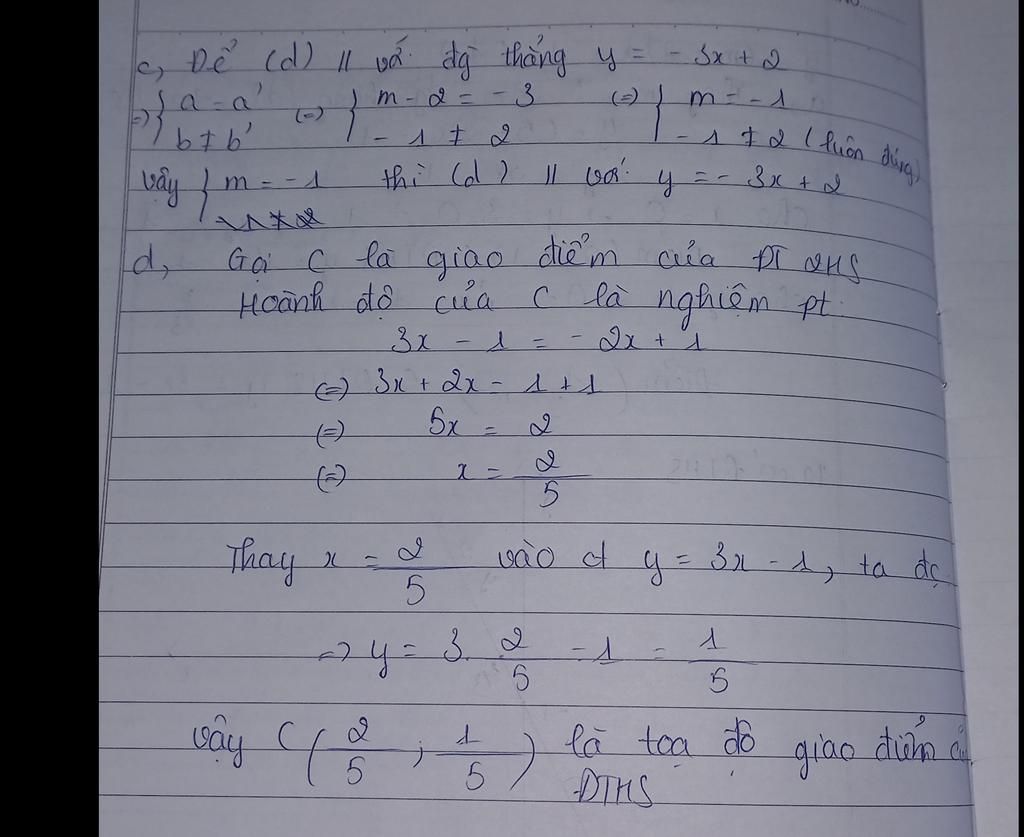 c, Để (d) // với đg thẳng y = - 3x + 2
=> { a = a' (=) { m - 2 = - 3 (=) { m = - 1
b ≠ b' - 1 ≠ 2 - 1 ≠ 2 (luôn đúng)
Vậy { m = - 1 thì (d) // với y = - 3x + 2
- 1 ≠ 2
d, Gọi C là giao điểm của ĐT 2HS
Hoành độ của C là nghiệm pt:
3x - 1 = - 2x + 1
(=) 3x + 2x - 1 + 1
(=) 5x = 2
(=) x = 2/5
Thay x = 2/5 vào d y = 3x - 1, ta đc
=> y = 3. 2/5 - 1 = 1/5
Vậy C (2/5 ; 1/5) là toạ độ giao điểm của
ĐTHS